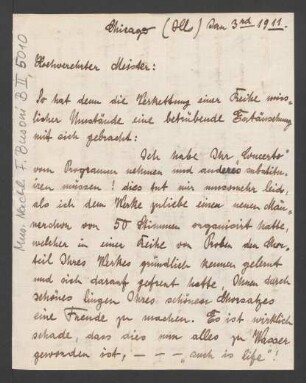 Chicago (Ill) Jan 3rd 1911.
Hochverehrter Meister:
So hat denn die Verkettung einer Reihe miss-
licher Umstände eine betrübende Enttäuschung
mit sich gebracht:
Ich habe Ihr „Concerto"
vom Programm nehmen und anderes substitu-
iren müssen! dies tut mir umsomehr leid,
als ich dem Werke zuliebe einen neuen Män-
nerchor von 50 Stimmen organisirt hatte,
welcher in einer Reihe von Proben den Chor-
teil Ihres Werkes gründlich kennen gelernt
und sich darauf gefreut hatte, Ihnen durch
schönes Singen Ihres schönen Chorsatzes
eine Freude zu machen. Es ist wirklich
schade, dass dies nun alles zu Wasser
geworden ist, – – – „auch is life"!
Mus. Nachl. F. Busoni B II, 5010